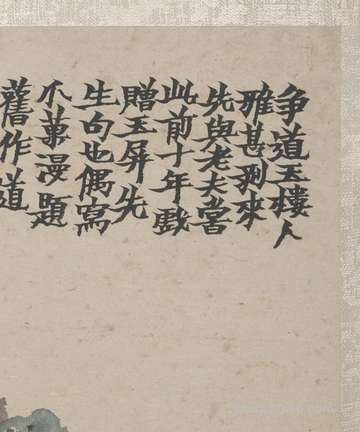 争道玉樓人
雅甚來
先與老夫嘗
此前十年戲
贈玉屏先
生句也偶寫
瓜菓漫題
舊作道